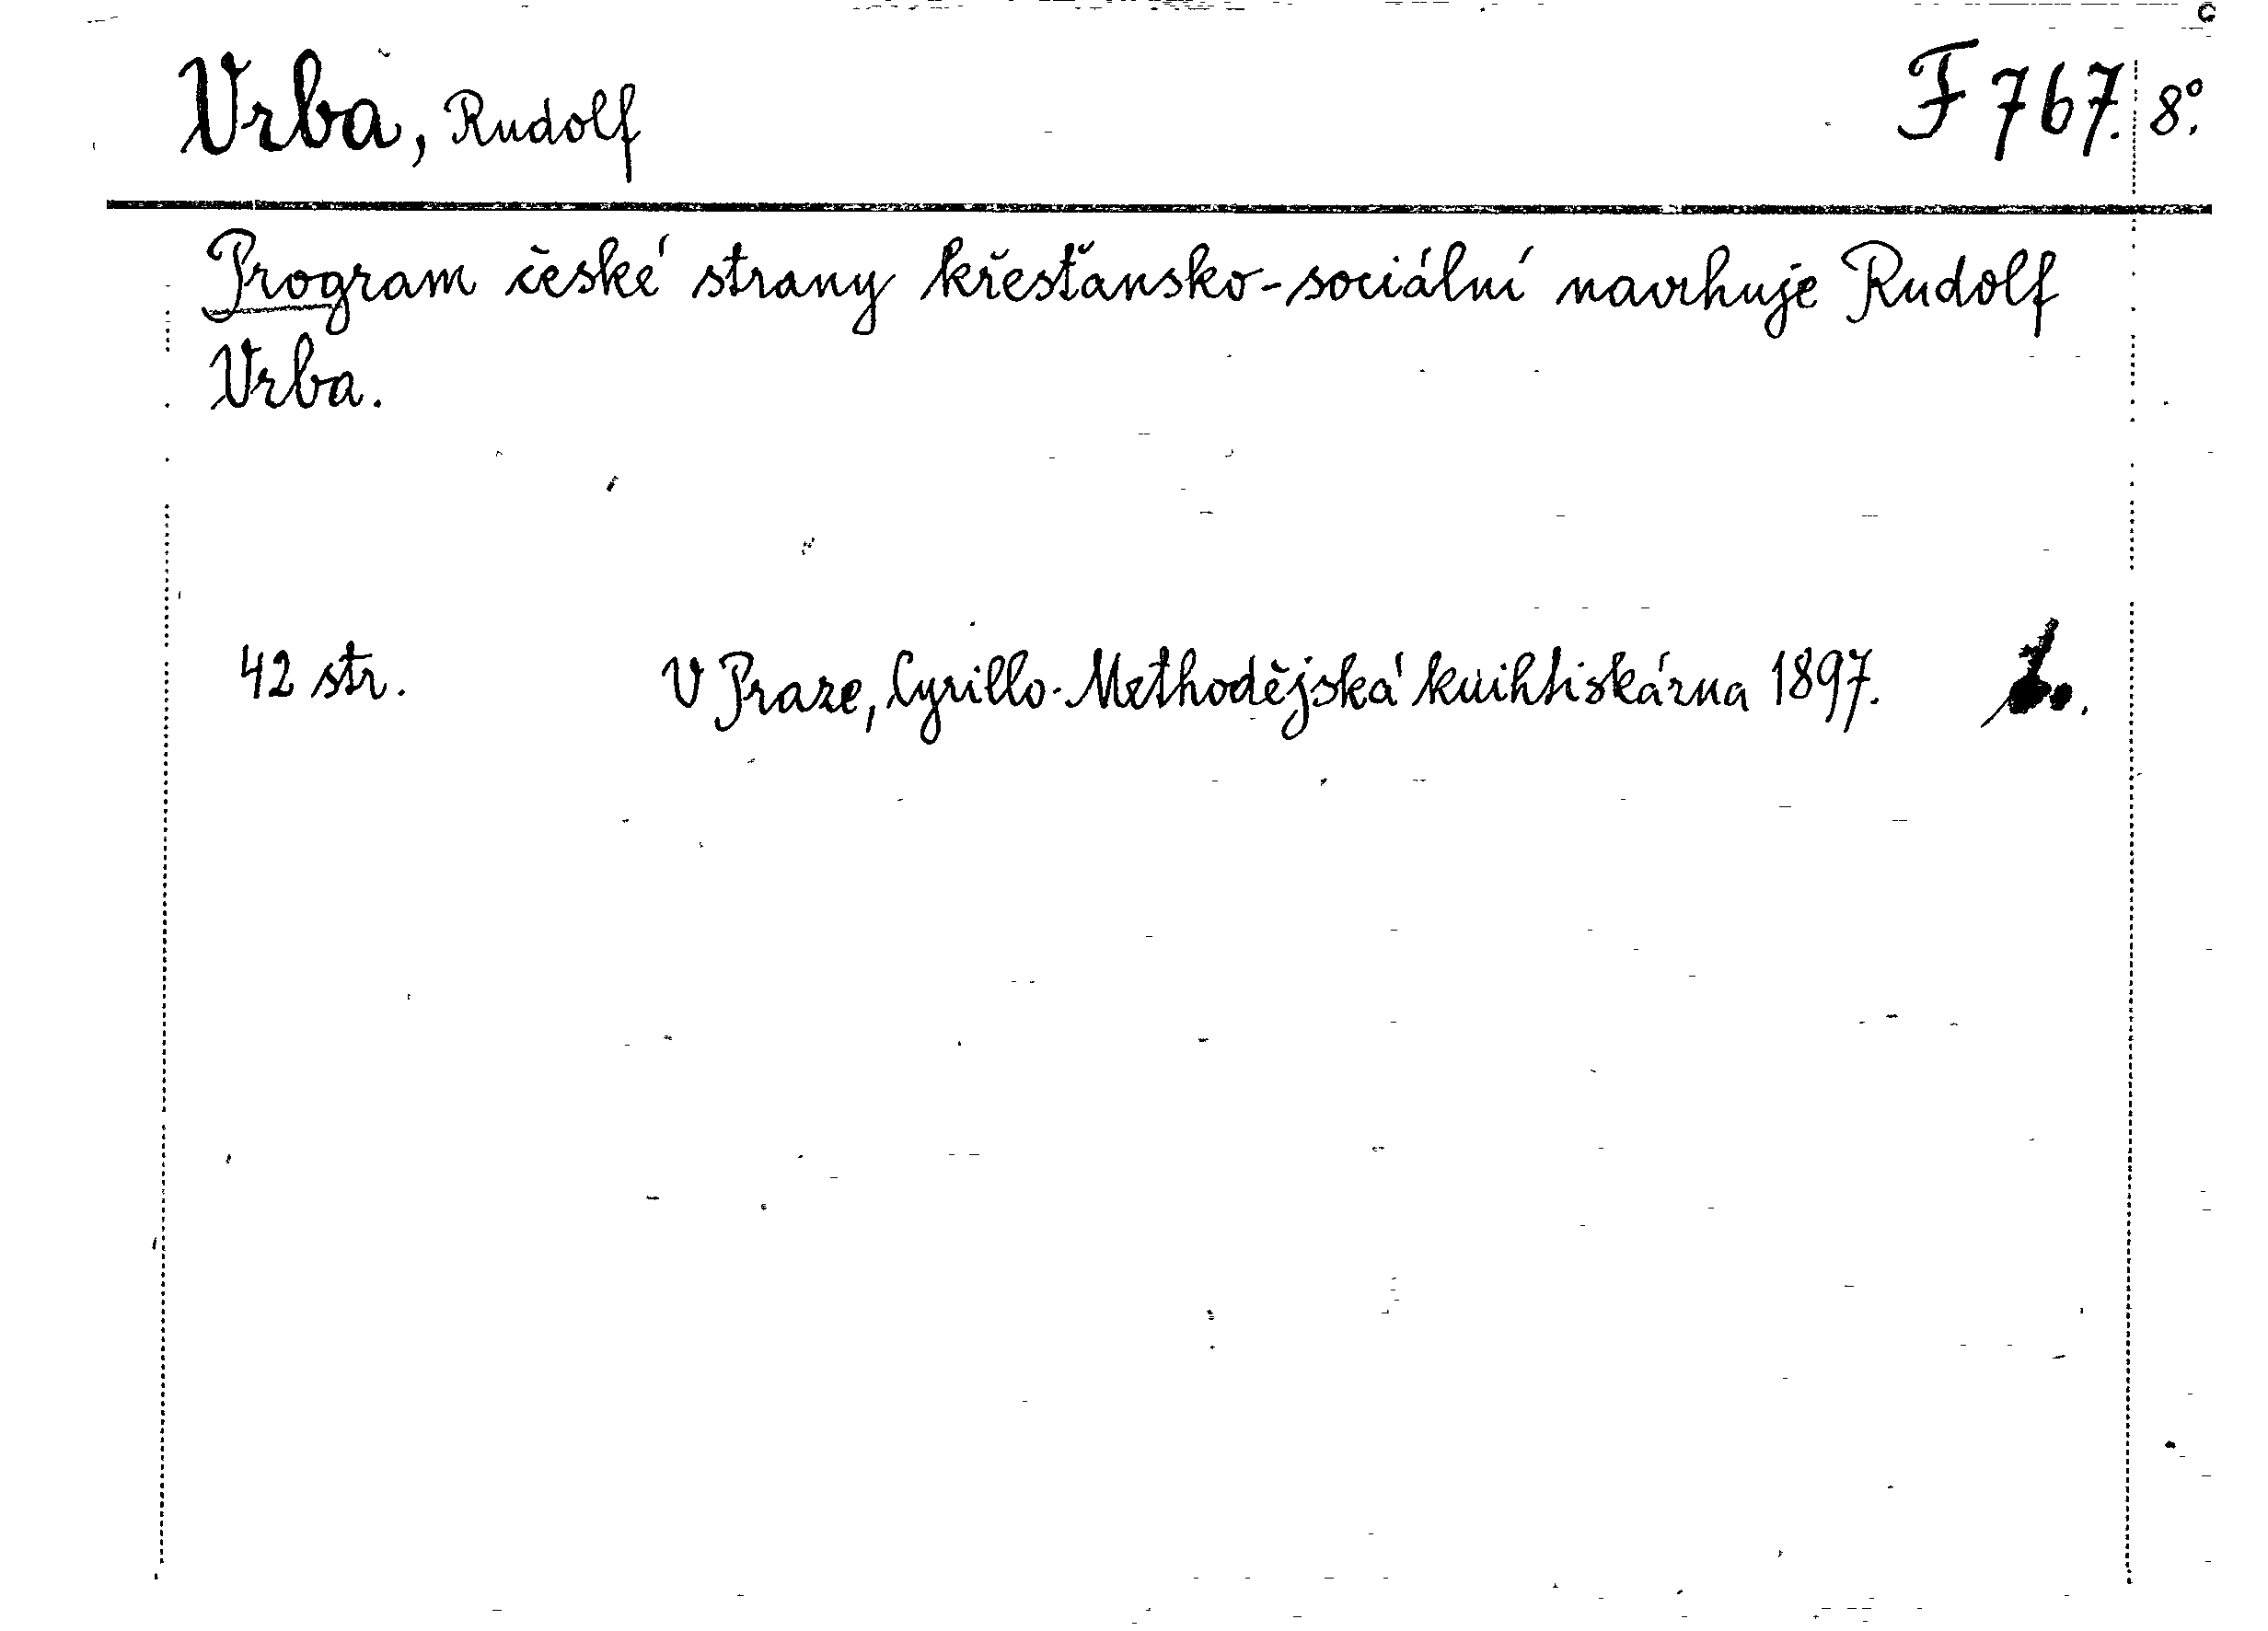 Vrba, Rudolf F 767. 8°.
Program české strany křesťansko-sociální navrhuje Rudolf
Vrba.
42 str. V Praze, Cyrillo-Methodějská knihtiskárna 1897.